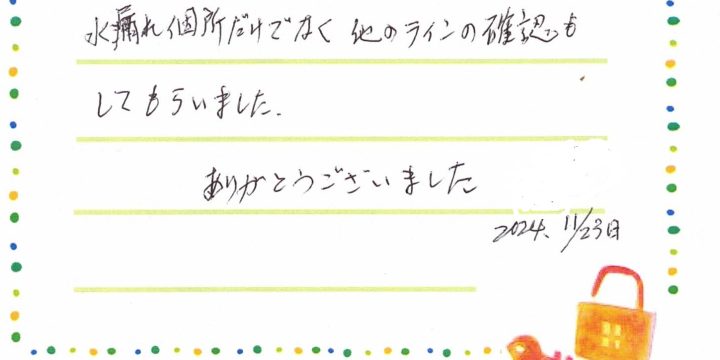 水漏れ個所だけでなく他のラインの確認も
してもらいました.
ありがとうございました
2024. 11/23日